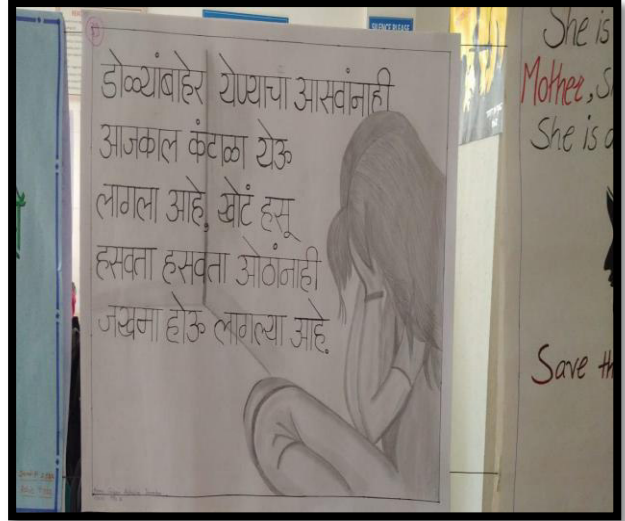 SILENCE PLEASE
डोळ्यांबाहेर येण्याचा आसवांनाही
आजकाल कंटाळा येऊ
लागला आहे, खोटं हसू
हसवता हसवता ओठांनाही
जखमा होऊ लागल्या आहे.
She is
Mother, S
She is a
Save th